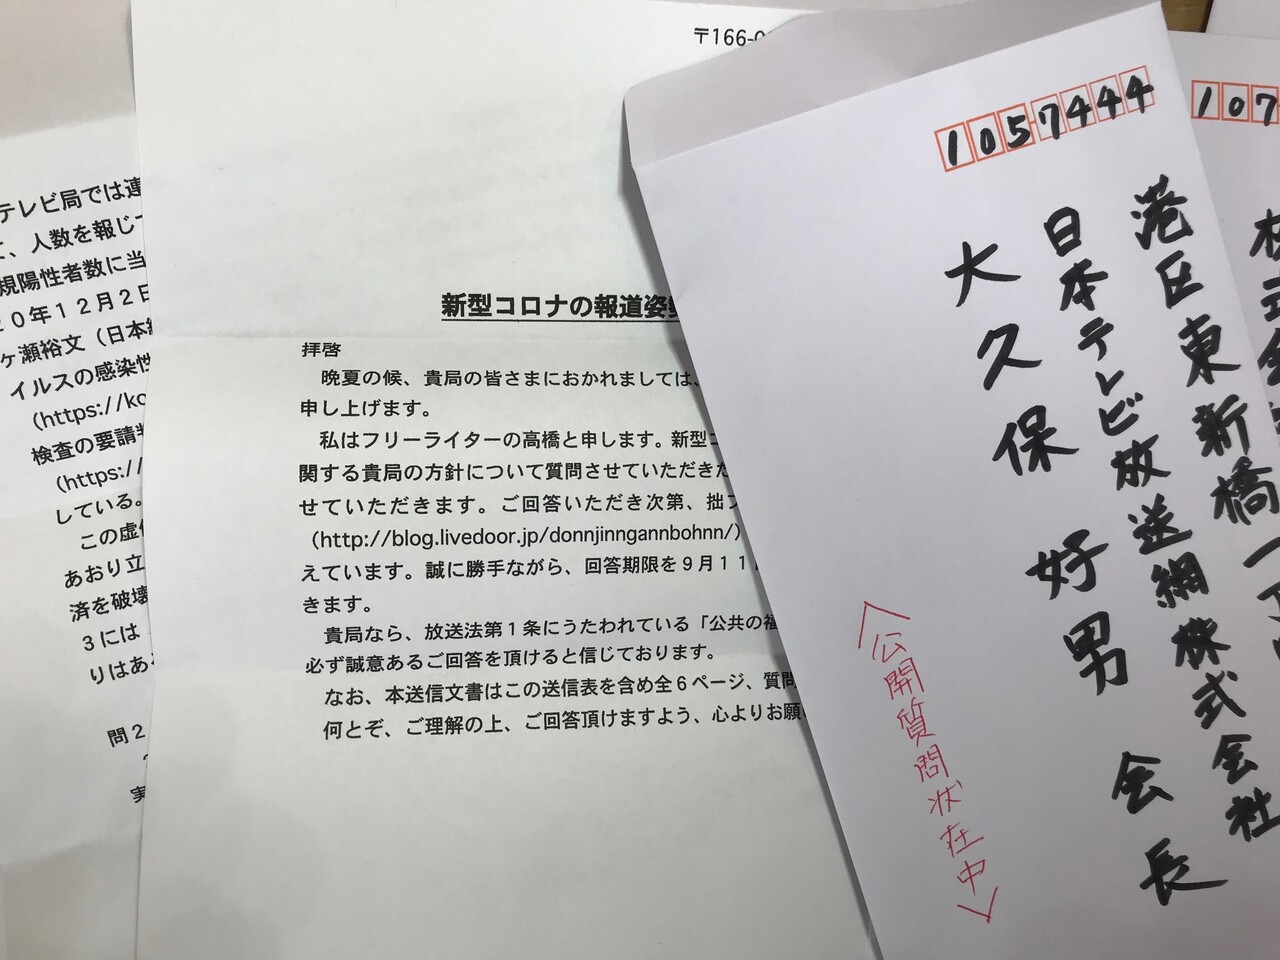 テレビ局では連
、人数を報じ
規陽性者数に当
20年12月2日
ヶ瀬裕文（日本
イルスの感染性
（https://ko
検査の要請
（https://
している。
この虚
あおり立
済を破壊
3には
りはあ
問2
〒166-0
新型コロナの報道姿
拝啓
晩夏の候、貴局の皆さまにおかれましては、
申し上げます。
私はフリーライターの高橋と申します。新型コ
関する貴局の方針について質問させていただきた
せていただきます。ご回答いただき次第、拙ブ
（http://blog.livedoor.jp/donnjinngannbohnn/）
えています。誠に勝手ながら、回答期限を9月11
きます。
貴局なら、放送法第1条にうたわれている「公共の福
必ず誠意あるご回答を頂けると信じております。
なお、本送信文書はこの送信表を含め全6ページ、質問
何とぞ、ご理解の上、ご回答頂けますよう、心よりお願い
1057444
港区東新橋一丁目
日本テレビ放送網株式会社
大久保 好男 会長
〈公開質問状在中〉
107
株式会社